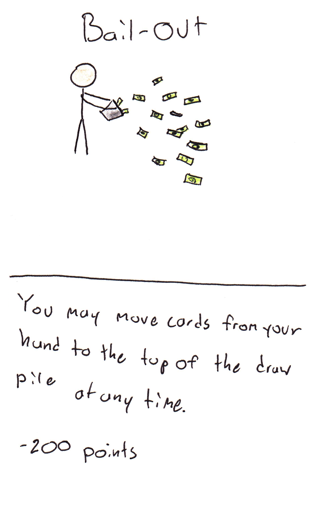 Bail-Out
You may move cards from your
hand to the top of the draw
pile at any time.
-200 points